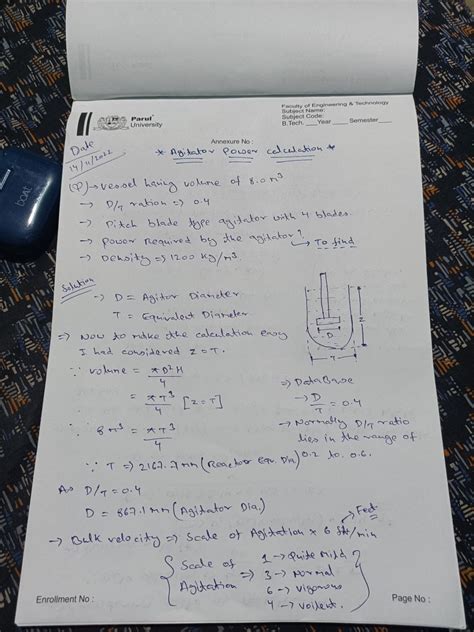 Parul
University
Faculty of Engineering & Technology
Subject Name:
Subject Code:
B.Tech. ___Year ____ Semester____
Annexure No :
Date
14/11/2022
* Agitator Power calculation *
(P) → vessel having volume of 8.0 m³
→ D/T ration => 0.4
→ Pitch blade type agitator with 4 blades.
→ power Required by the agitator? → To find
→ Density => 1200 kg/m³.
Solution
→ D = Agitor Diameter
T = Equivalent Diameter
=> Now to make the calculation easy
I had considered z = T.
∵ volume = πD²H/4
= πT³/4 [z = T]
∵ 8m³ = πT³/4
∵ T => 2167.7 mm (Reactor Equ. Dia)
As D/T = 0.4
D = 867.1 mm (Agitator Dia.)
D
T
Z
=> Data Base
→ D/T = 0.4
→ Normally D/T ratio
lies in the range of
0.2 to 0.6.
→ Bulk velocity => Scale of Agitation × 6 ft/min
Feet
{ Scale of Agitation =>
1 → Quite Mild
3 → Normal
6 → Vigorous
4 → voilent. }
Enrollment No :
Page No :